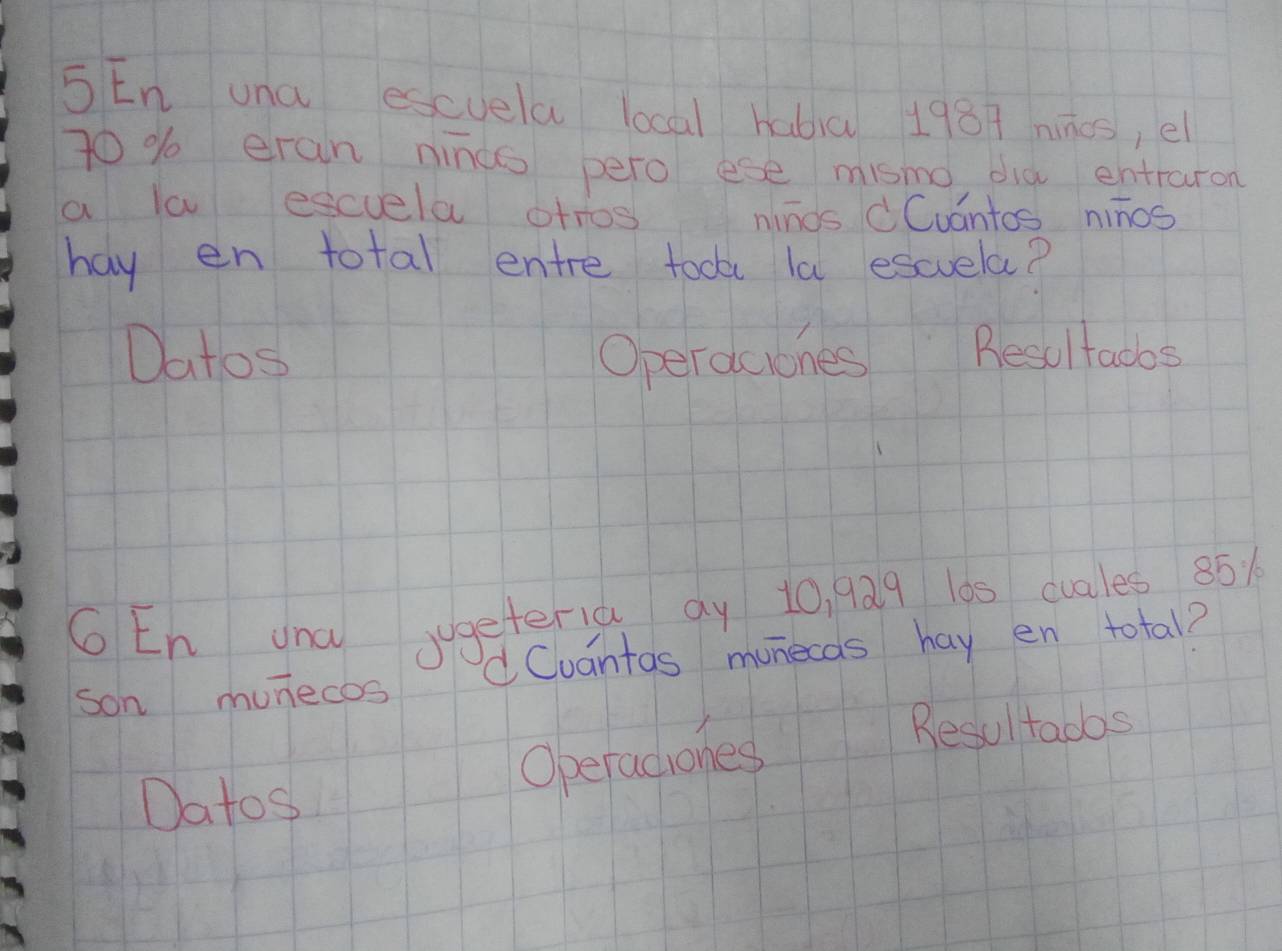 5 En una escuela local habia 1987 niños, el
70% eran niñas pero ese mismo dia entraron
a la escuela otros niños ¿Cuántos niños
hay en total entre toda la escuela?
Datos Operaciónes Resultados
6 En una jugeteria ay 10,929 los cuales 85%
son muñecos ¿Cuántas muñecas hay en total?
Datos Operaciónes Resultados